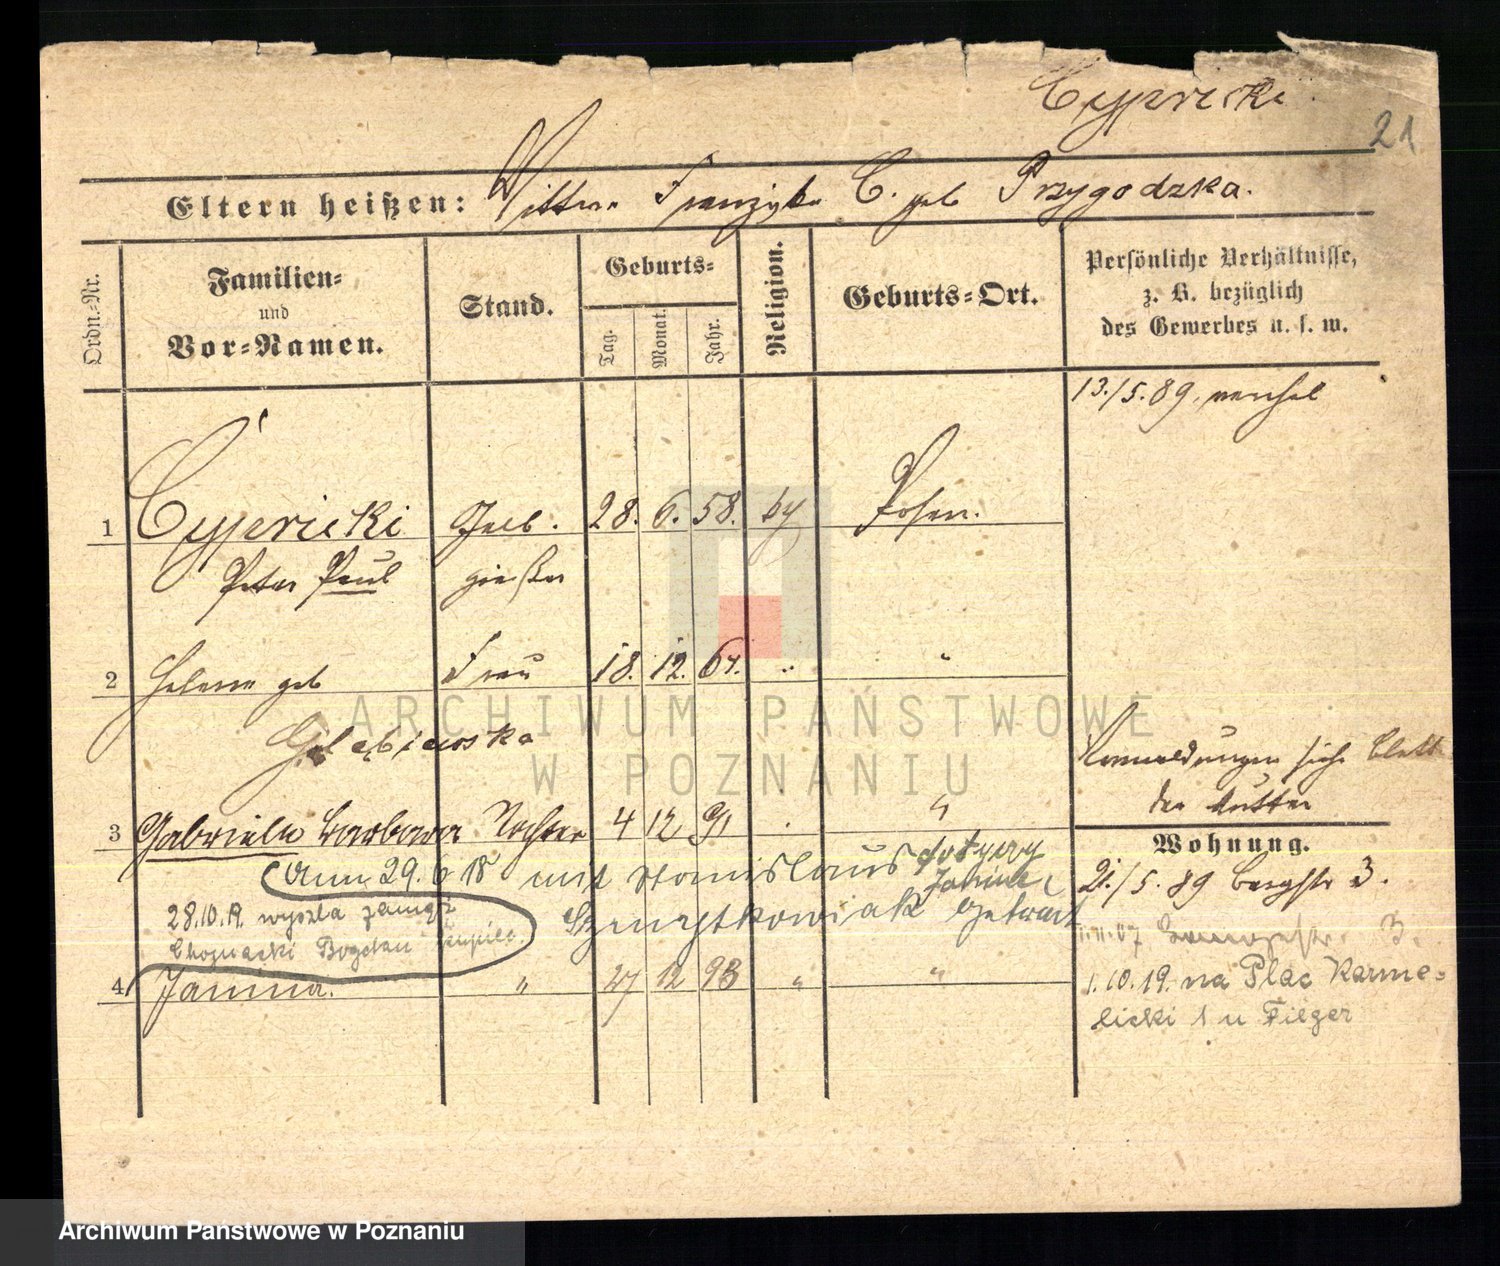 Cypricki
21
Eltern heißen: Wittwe Franziska C. geb Przygodzka.
Ordn.-Nr.
Familien-
und
Vor-Namen.
Stand.
Geburts-
Tag.
Monat.
Jahr.
Religion.
Geburts-Ort.
Persönliche Verhältnisse,
z. B. bezüglich
des Gewerbes u. s. w.
13./5. 89.
1 Cypricki Gelb. 28. 6. 58. Posen.
Peter Paul gießer
2 Helene geb Frau 18. 12. 64. " "
Gołębiewska
Anmeldungen siehe Blatt
der Mutter
3 Gabriele Barbara Tochter 4 12 91 "
Wohnung.
21./5. 89 Bergstr 3.
Am 29.6 18 mit Stanislaus dotyczy
Janine
Szmytkowiak getraut
28.10.19. wyszła zamąż
Chojnacki Bogdan
4 Janina. " 27 12 93 " "
3.
1.10.19. na Plac Karme-
licki 1 u Filger
ARCHIWUM PAŃSTWOWE
W POZNANIU
Archiwum Państwowe w Poznaniu